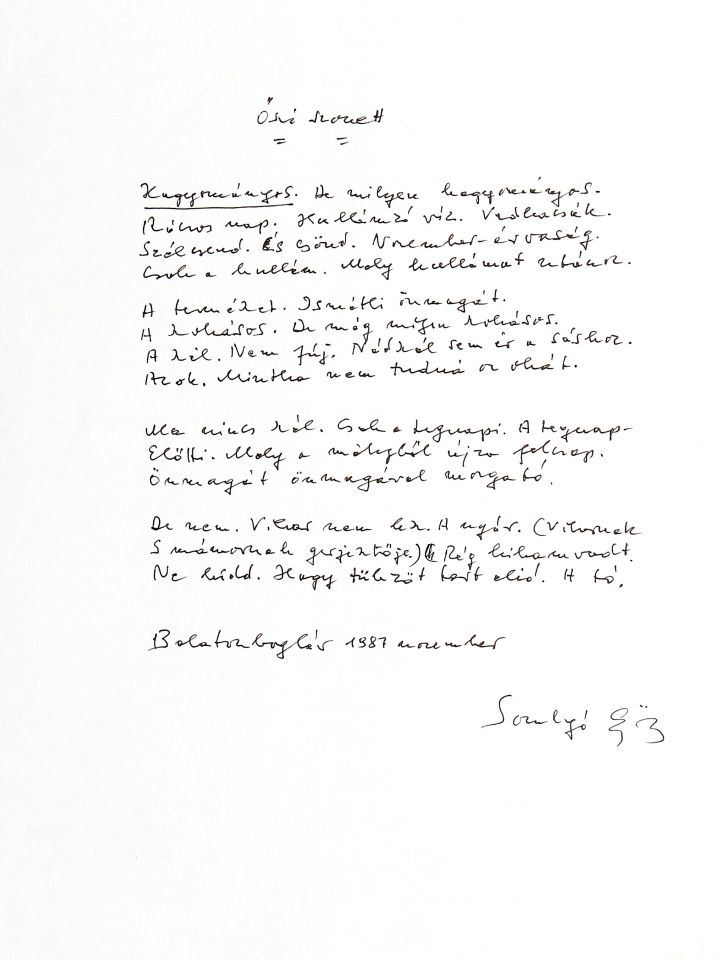 Őszi szonett
Hagyományos. De milyen hagyományos.
Rácsos nap. Hullámzó víz. Vadkacsák.
Szélcsend. És csönd. November-árvaság.
Csak a hullám. Mely hullámot utánoz.
A természet. Ismétli önmagát.
A szokásos. De még mijen szokásos.
A szél. Nem fúj. Nádszál sem ér a sáshoz.
Azok. Mintha nem tudná az okát.
Ma nincs szél. Csak a tegnapi. A tegnap-
Előtti. Mely a mélyből újra felcsap.
Önmagát önmagával mozgató.
De nem. Vihar nem lesz. A nyár. (Viharnak
S mámornak gerjesztője.) Rég kihamvadt.
Ne hidd. Hagy tükröt tart eléd. A tó.
Balatonboglár 1987 november
Somlyó György